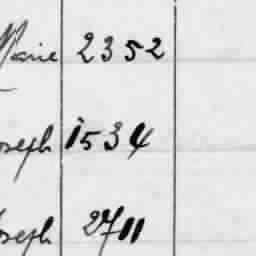 Marie 2352
oseph 1534
oseph 2711